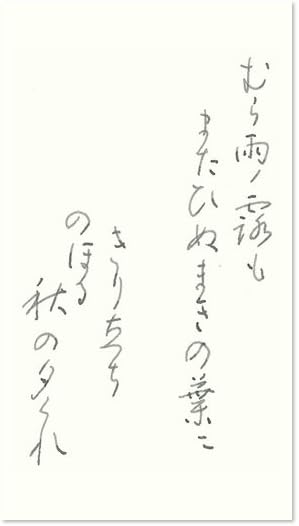 むら雨ノ露も
またひぬまきの葉に
きりたち
のほる
秋の夕くれ